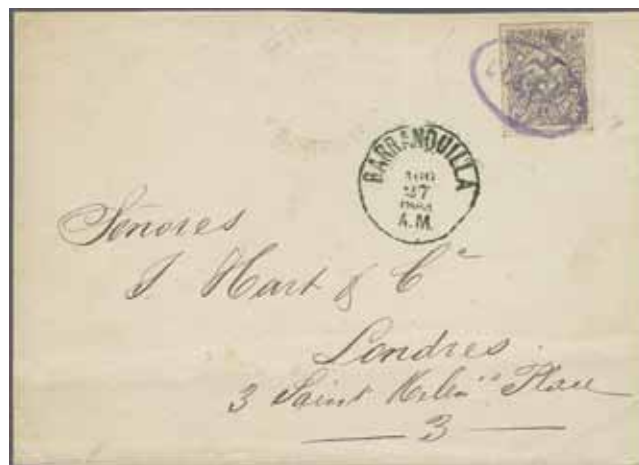 BARRANQUILLA
AGO
27
A.M.
Señores
J. Hart & Cª
Londres.
3 Saint Helen's Place
3